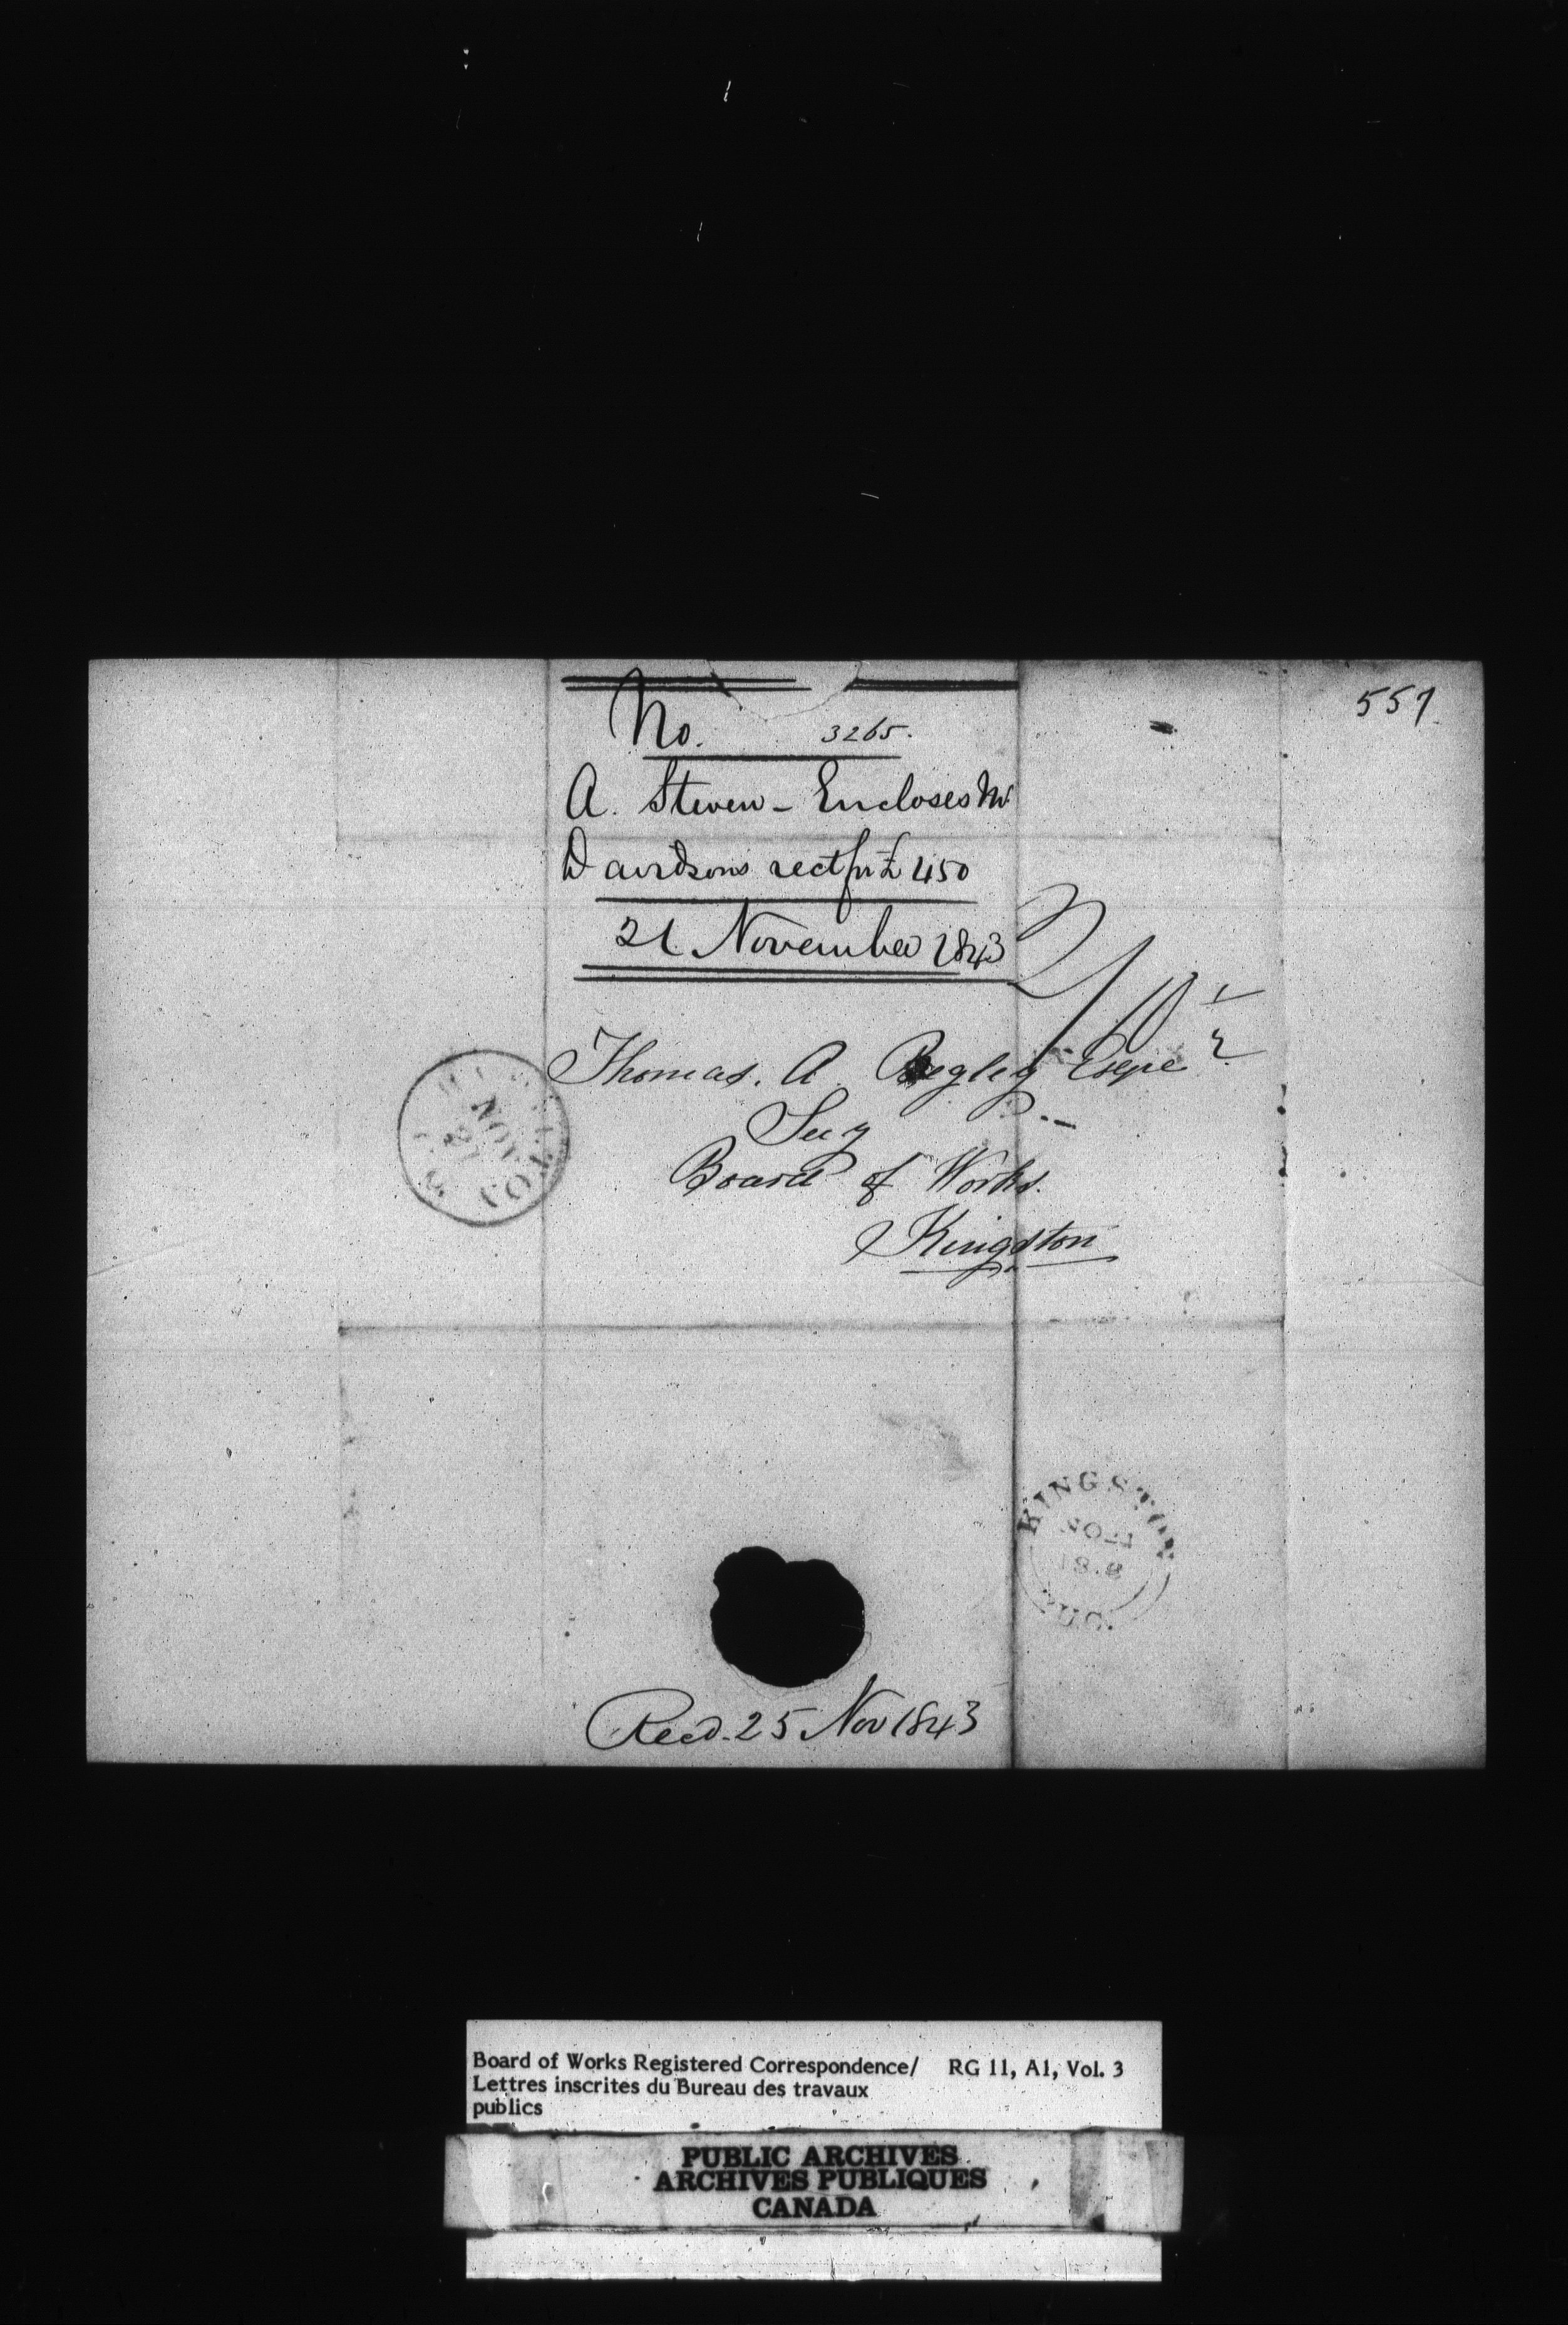 557
No. 3265.
A. Steven - Encloses Mr
Davidsons rect for £450
21 November 1843
Thomas. A. Begley Esqre
Secy
Board of Works.
Kingston
NOV
21
KINGSTON
U.C.
Recd. 25 Nov 1843
Board of Works Registered Correspondence/ RG 11, A1, Vol. 3
Lettres inscrites du Bureau des travaux
publics
PUBLIC ARCHIVES
ARCHIVES PUBLIQUES
CANADA